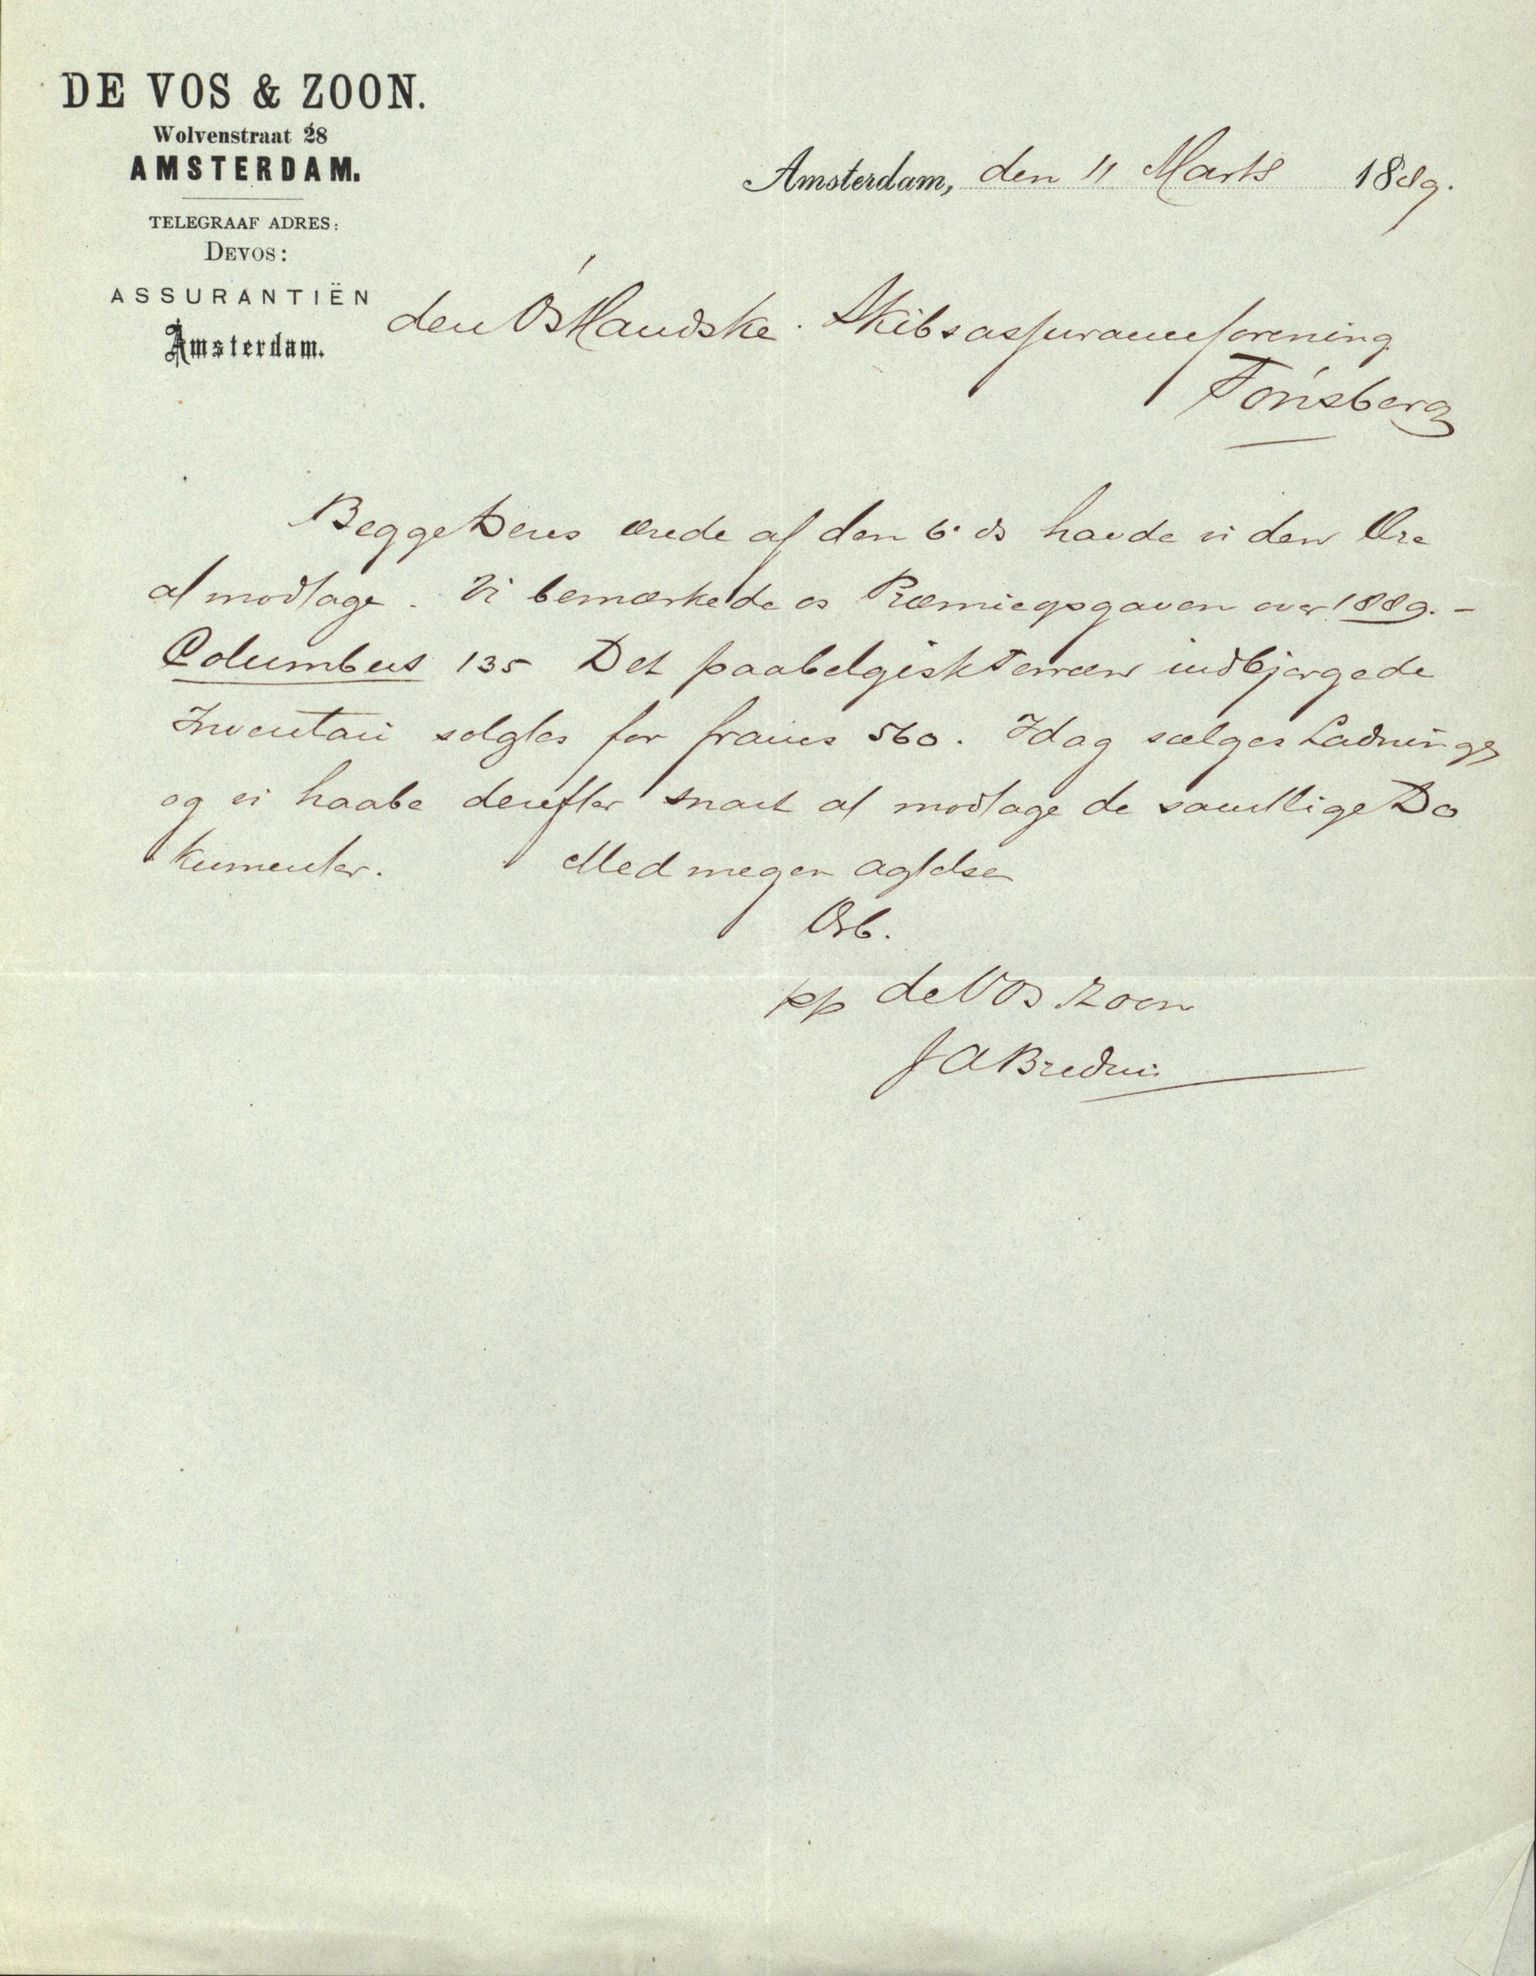 DE VOS & ZOON.
Wolvenstraat 28
AMSTERDAM.
TELEGRAAF ADRES:
DEVOS:
ASSURANTIËN
Amsterdam.
Amsterdam, den 11 Marts 1889.
den Østlandske Skibsassuranceforening
Tønsberg
Begge Deres ærede af den 6. ds havde vi den Ære
at modtage. Vi bemærkede os Præmieopgaven over 1889. -
Columbus 135 Det paa belgisk Terræn indbjergede
Inventari solgtes for francs 560. Idag sælges Ladningen
og vi haabe derefter snart at modtage de samtlige Do
kumenter. Med megen Agtelse
Orb.
pp de Vos & Zoon
J A Bredui